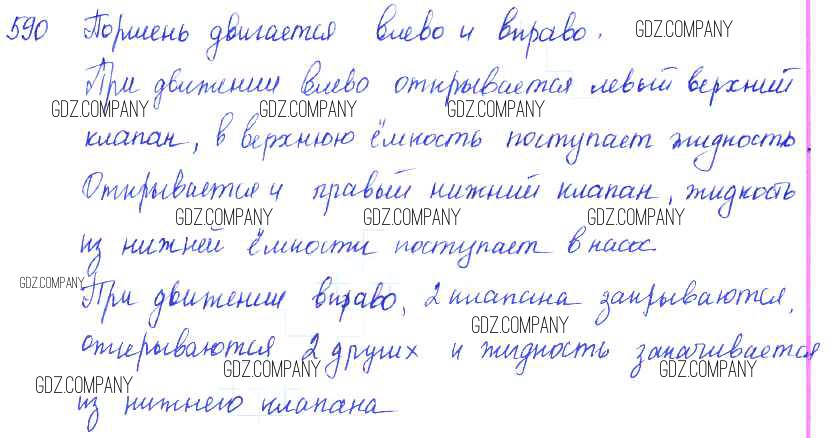 590 Поршень двигается влево и вправо. GDZ.COMPANY
При движении влево открывается левый верхний
GDZ.COMPANY GDZ.COMPANY GDZ.COMPANY
клапан, в верхнюю ёмкость поступает жидкость.
Открывается и правый нижний клапан, жидкость
GDZ.COMPANY GDZ.COMPANY GDZ.COMPANY
из нижней ёмкости поступает в насос.
GDZ.COMPANY
При движении вправо, 2 клапана закрываются,
GDZ.COMPANY
открываются 2 других и жидкость закачивается
GDZ.COMPANY GDZ.COMPANY
из нижнего клапана